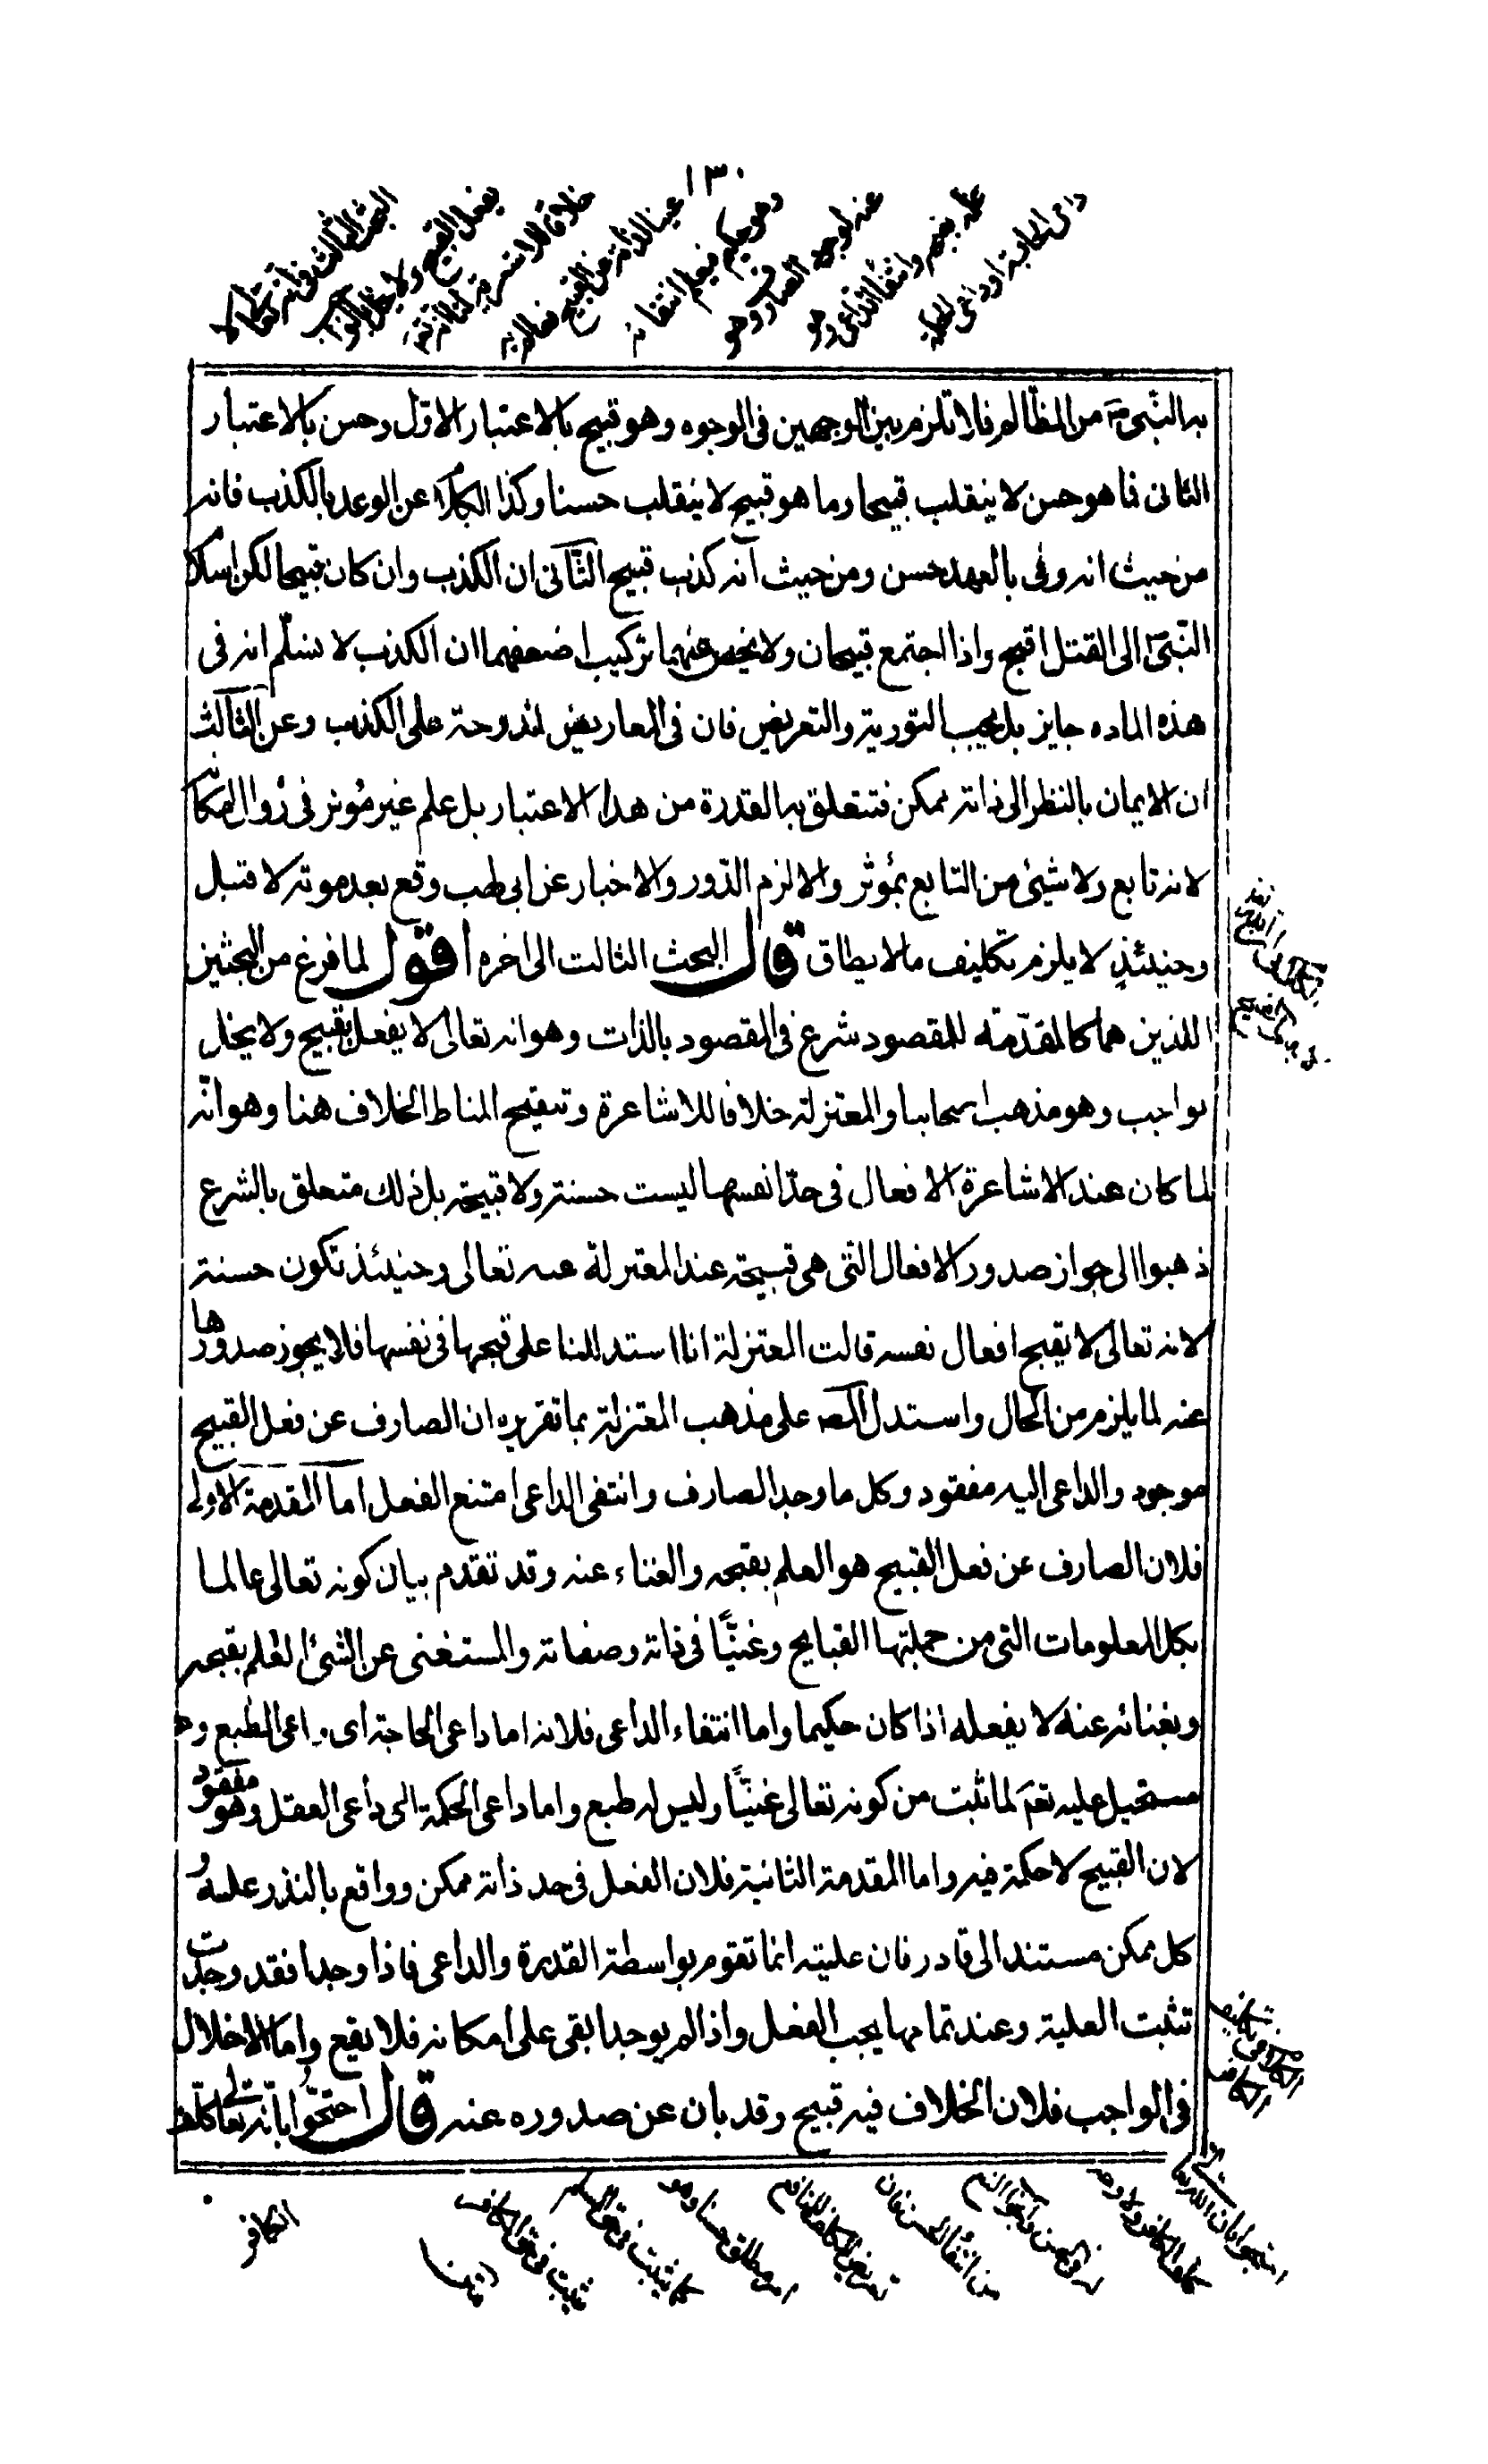 ١٣٠
البحث الثالث في انه تعالى لا
يفعل القبيح ولا يخل بالواجب
خلافا للاشعرية لنا انه تعـ
غني لذاته عن القبيح وعالم به
وهو حكيم فيعلم انتفائه
عنه لوجود الصارف وهو
علمه بقبحه وانتفاء الداعي وهو
داعي الحاجة او داعي الحكمة
به النبي ص من المظالم فلا تلزم بين الوجهين في الوجوه وهو قبيح بالاعتبار الاول وحسن بالاعتبار
الثاني فما هو حسن لا ينقلب قبيحا وما هو قبيح لا ينقلب حسنا وكذا الكلام عن الوعد بالكذب فانه
من حيث انه وفى بالعهد حسن ومن حيث انه كذب قبيح الثاني ان الكذب وان كان قبيحا لكن اسلام
النبي الى القتل اقبح واذا اجتمع قبيحان ولا يخلص عنهما تركيب اضعفهما ان الكذب لا نسلم انه في
هذه الماده جايز بل يجب التورية والتعريض فان في المعاريض لمندوحة على الكذب وعن الثالث
ان الايمان بالنظر الى ذاته ممكن فتتعلق به القدرة من هذا الاعتبار بل علم غير مؤثر في زوال امكانه
لانه تابع ولا شيئ من التابع بمؤثر والا لزم الدور والاخبار عن ابي لهب وقع بعد موته لا قبل
وحينئذ لا يلزم تكليف ما لا يطاق قال البحث الثالث الى اخره اقول لما فرغ من البحثين
اللذين هما كالمقدمة للمقصود شرع في المقصود بالذات وهو انه تعالى لا يفعل بقبيح ولا يخل
بواجب وهو مذهب اصحابنا والمعتزلة خلافا للاشاعرة وتنقيح المناط الخلاف هنا وهو انه
لما كان عند الاشاعرة الافعال في حد انفسها ليست حسنة ولا قبيحة بل ذلك متعلق بالشرع
ذهبوا الى جواز صدور الافعال التي هي قبيحة عند المعتزلة عنه تعالى وحينئذ تكون حسنة
لانه تعالى لا يقبح افعال نفسه قالت المعتزلة انا استدللنا على قبحها في نفسها فلا يجوز صدورها
عنه لما يلزم من المحال واستدل المصـ على مذهب المعتزلة بما تقريره ان الصارف عن فعل القبيح
موجود والداعي اليه مفقود وكل ما وجد الصارف وانتفى الداعي امتنع الفعل اما المقدمة الاولى
فلان الصارف عن فعل القبيح هو العلم بقبحه والغناء عنه وقد تقدم بيان كونه تعالى عالما
بكل المعلومات التي من جملتها القبايح وغنيا في ذاته وصفاته والمستغني عن الشئ العالم بقبحه
وبغنائه عنه لا يفعله اذا كان حكيما واما انتفاء الداعي فلانه اما داعي الحاجة اي داعي الطبع وهو
مستحيل عليه تعـ لما ثبت من كونه تعالى غنيا وليس له طبع واما داعي الحكمة الى داعي العقل وهو مفقود
لان القبيح لا حكمة فيه واما المقدمة الثانية فلان الفعل في حد ذاته ممكن وواقع بالنذر
كل ممكن مستند الى قادر فان عليته انما تقوم بواسطة القدرة والداعي فاذا وجدا فقد وجدت
تثبت العلية وعند تمامها يجب الفعل واذا لم يوجدا بقي على امكانه فلا يقع واما الاخلال
في الواجب فلان الخلاف فيه قبيح وقد بان عن صدوره عنه قال احتجوا بانه تعالى كلف
الكافر